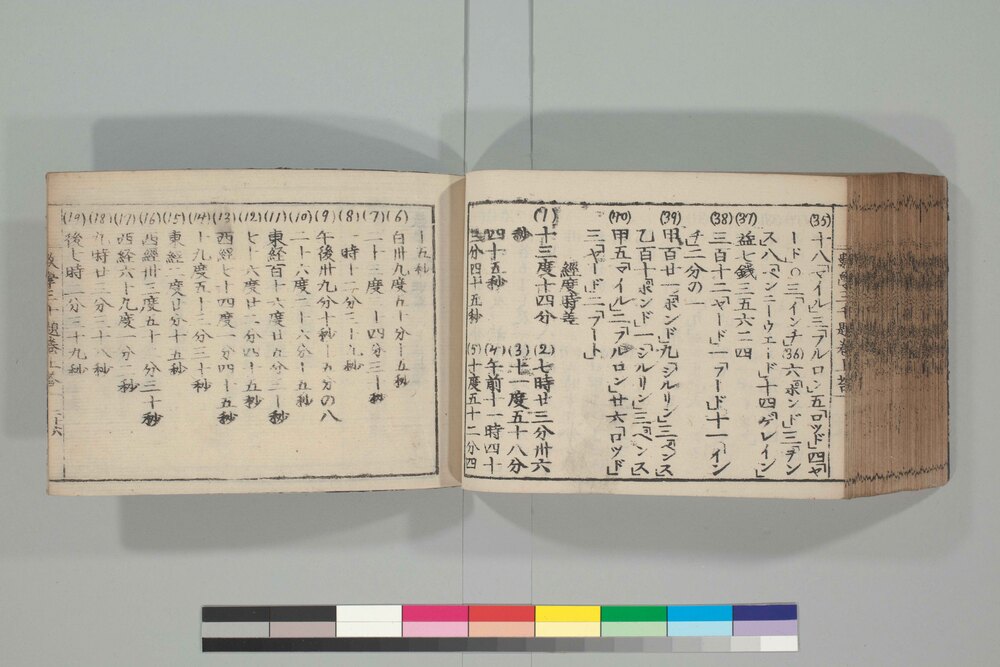 (35) 十八「マイル」三「フルロン」五「ロッド」四「ヤ
ード」〇三「インチ」(36) 六「ポンド」三「ヲン
ス」八「ペンニーウェード」十四「ゲレイン」
(37) 益七銭三五六二四
(38) 三百十二「ヤード」一「フード」十一「イン
チ」二分の一
(39) 甲百廿一「ポンド」九「シルリン」三「ペンス」
乙百十「ポンド」一「シルリン」三「ペンス」
(40) 甲五「マイル」二「フルロン」廿六「ロッド」
三「ヤード」二「フート」
經度時差
(1) 十三度十四分 (2) 七時廿三分卅六
秒 (3) 七十一度五十八分
四十五秒 (4) 午前十一時四十
三分四十五秒 (5) 十度五十二分四
十五秒
(6) 白卅九度五十分十五秒
(7) 二十三度一十四分三十秒
(8) 一時十二分三十九秒
(9) 午後卅九分十秒十五分の八
(10) 二十六度二十六分十五秒
(11) 東經百十六度廿五分三十秒
(12) 七十六度廿二分四十五秒
(13) 西經七十四度一分四十五秒
(14) 十九度五十二分三十秒
(15) 東經二度廿分十五秒
(16) 西經卅三度五十一分三十秒
(17) 西經六十九度一分二秒
(18) 九時廿三分二十八秒
(19) 後七時二分三十九秒